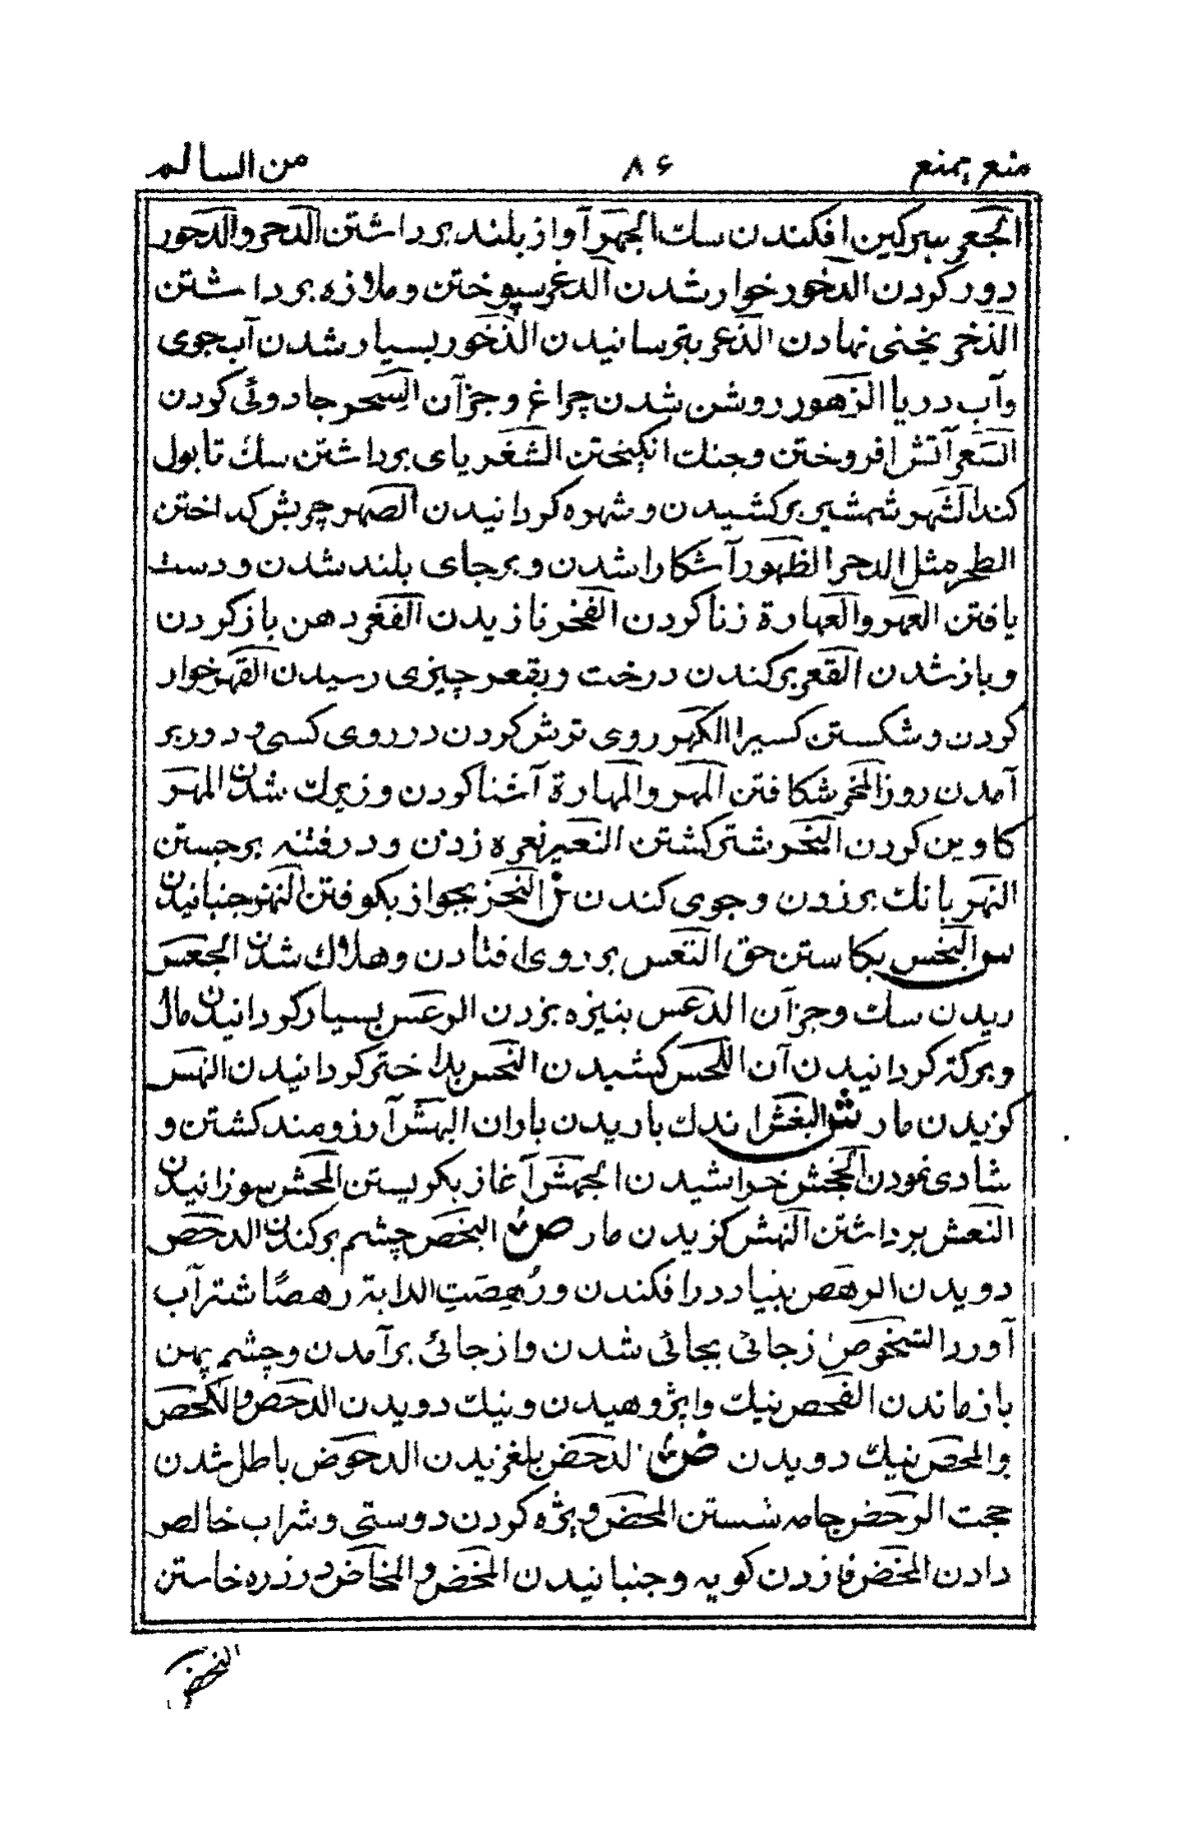 منع یمنع ۸۶ من السالم
الجعر سرکین افکندن سك الجهر آواز بلند برداشتن الدحر والدحور
دور کردن الدخور خوار شدن الدغر سپوختن وملازه برداشتن
الذخر یخنی نهادن الذعر بترسانیدن الذخور بسیار شدن آب جوی
وآب دریا الزهور روشن شدن چراغ وجز آن السحر جادوئی کردن
السعر آتش افروختن وجنك انکیختن الشغر پای برداشتن سك تا بول
کند الشهر شمشیر برکشیدن وشهره کردانیدن الصهر چربش کداختن
الطحر مثل الدحر الظهور آشکارا شدن وبرجای بلند شدن ودست
یافتن العهر والعهارة زنا کردن الفخر نازیدن الفغر دهن باز کردن
وباز شدن القعر برکندن درخت وبقعر چیزی رسیدن القهر خوار
کردن وشکستن کسیرا الکهر روی ترش کردن در روی کسی ودور بر
آمدن روز المخر شکافتن المهر والمهارة آشنا کردن وزیرك شدن المهر
کاوین کردن النحر شتر کشتن النعیر نعره زدن ودر فتنه برجستن
النهر بانك برزدن وجوی کندن ز النحز بجواز بکوفتن النهز جنبانیدن
س البخس بکاستن حق التعس بر روی افتادن وهلاك شدن الجعس
ریدن سك وجز آن الدعس بنیزه بزدن الرغس بسیار کردانیدن مال
وبرکة کردانیدن آن اللحس کشیدن النحس بد اختر کردانیدن النهس
کزیدن مار ش البغش اندك باریدن باران البهش آرزومند کشتن و
شادی نمودن الجحش خراشیدن الجهش آغاز بکریستن المحش سوزانیدن
النعش برداشتن النهش کزیدن مار ص البخص چشم برکندن الدحص
دویدن الرهص بنیاد درافکندن ورُهِصَتِ الدابة رهصًا شتر آب
آورد الشخوص ز جائی بجائی شدن واز جائی برآمدن وچشم پهن
باز ماندن الفحص نیك واپژوهیدن ونیك دویدن الدحص والکحص
والمحص نیك دویدن ض الدحض بلغزیدن الدحوض باطل شدن
حجت الرحض جامه شستن المحض ویژه کردن دوستی وشراب خالص
دادن المخض فازدن کوپه وجنبانیدن المخض والمخاض درزه خاستن
النحض